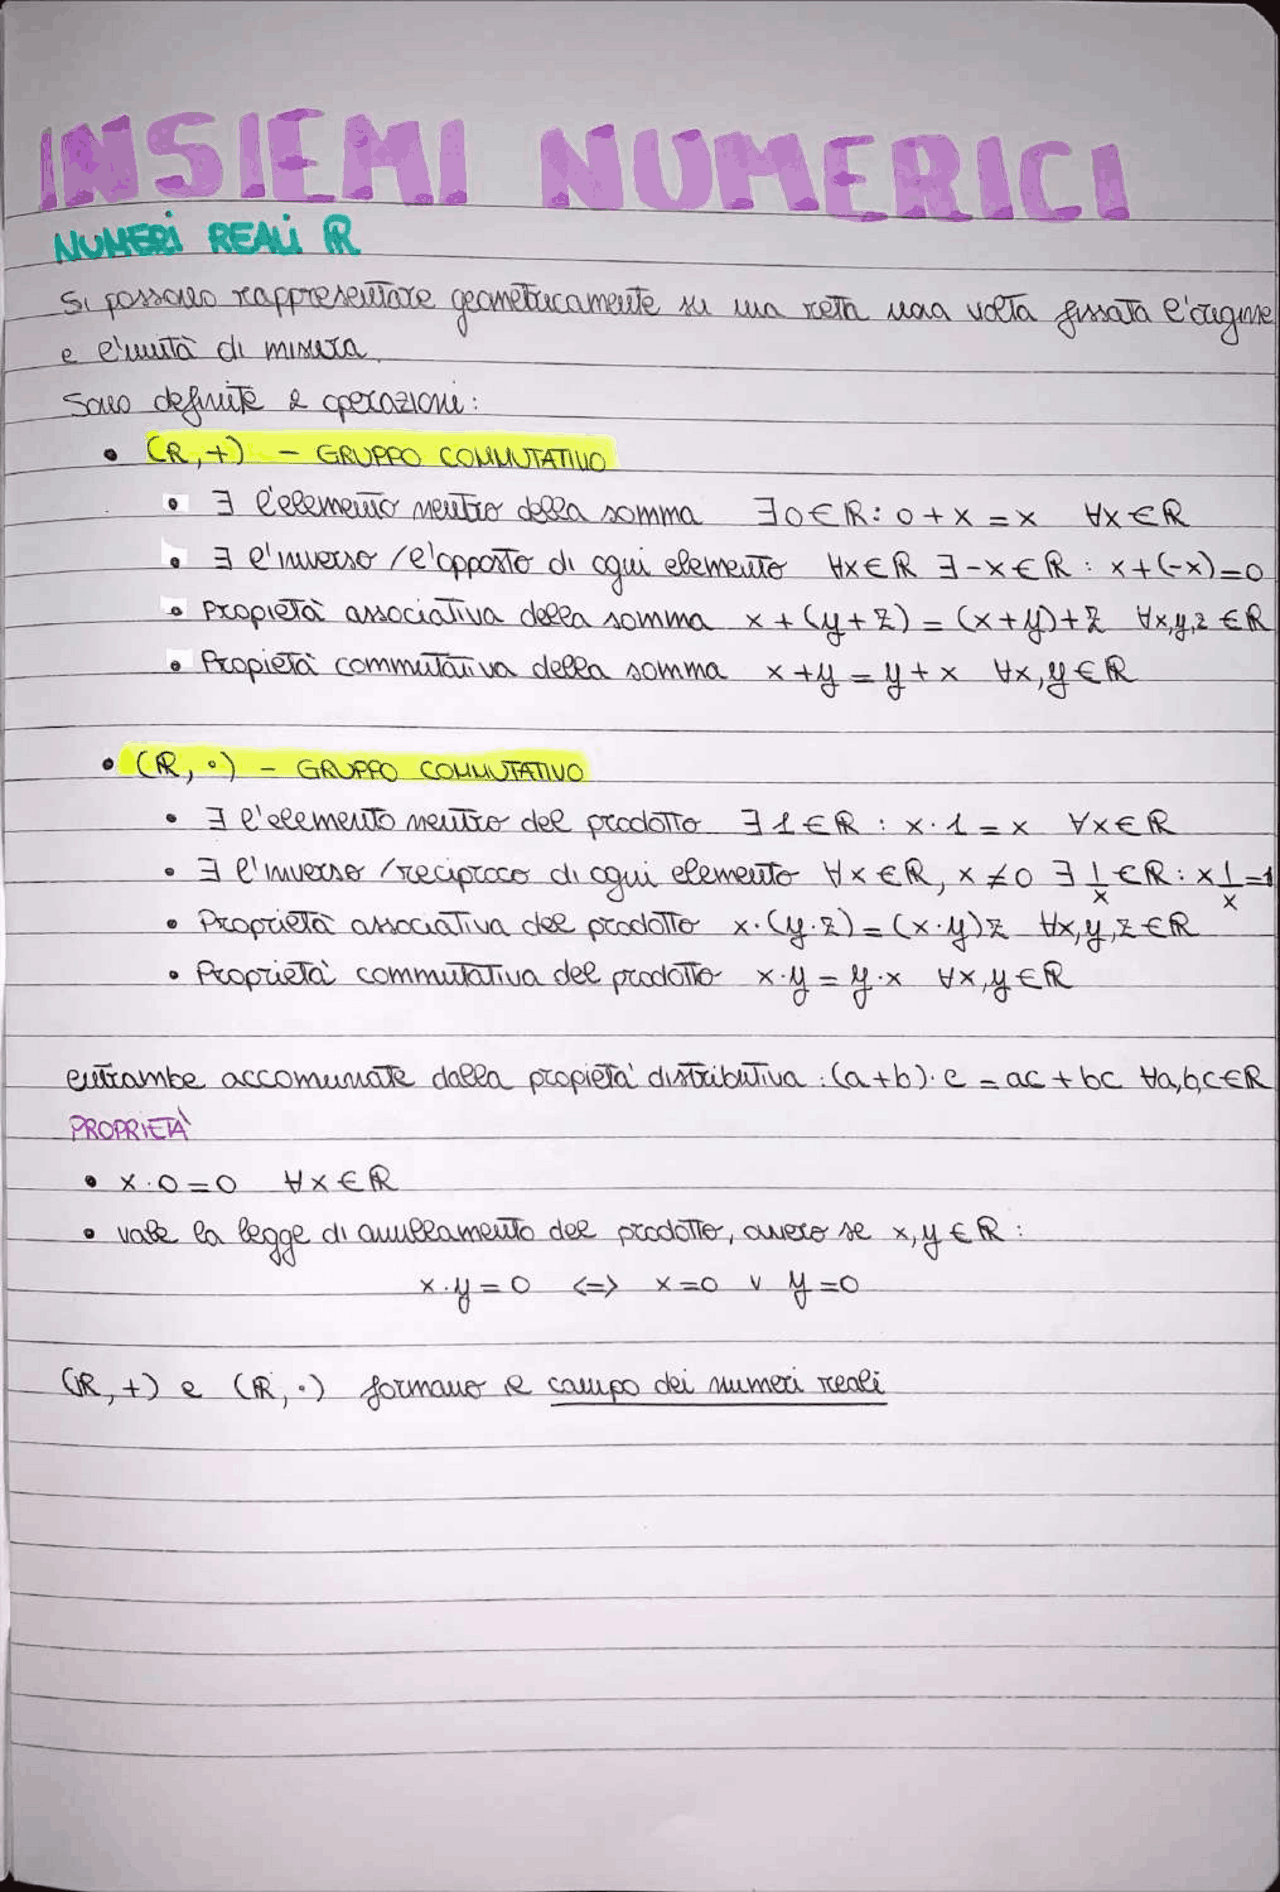 INSIEMI NUMERICI
NUMERI REALI ℝ
Si possono rappresentare geometricamente su una retta una volta fissata l'origine
e l'unità di misura.
Sono definite 2 operazioni:
• (ℝ, +) - GRUPPO COMMUTATIVO
• ∃ l'elemento neutro della somma ∃0∈ℝ: 0+x=x ∀x∈ℝ
• ∃ l'inverso/l'opposto di ogni elemento ∀x∈ℝ ∃-x∈ℝ : x+(-x)=0
• Propietà associativa della somma x+(y+z)=(x+y)+z ∀x,y,z∈ℝ
• Propietà commutativa della somma x+y=y+x ∀x,y∈ℝ
• (ℝ, ·) - GRUPPO COMMUTATIVO
• ∃ l'elemento neutro del prodotto ∃1∈ℝ : x·1=x ∀x∈ℝ
• ∃ l'inverso/reciproco di ogni elemento ∀x∈ℝ, x≠0 ∃ 1/x ∈ℝ: x 1/x =1
• Proprietà associativa del prodotto x·(y·z)=(x·y)z ∀x,y,z∈ℝ
• Proprietà commutativa del prodotto x·y=y·x ∀x,y∈ℝ
entrambe accomunate dalla propietà distributiva: (a+b)·c=ac+bc ∀a,b,c∈ℝ
PROPRIETÀ
• x·0=0 ∀x∈ℝ
• vale la legge di annullamento del prodotto, ovvero se x,y∈ℝ:
x·y=0 <=> x=0 ∨ y=0
(ℝ, +) e (ℝ, ·) formano il campo dei numeri reali